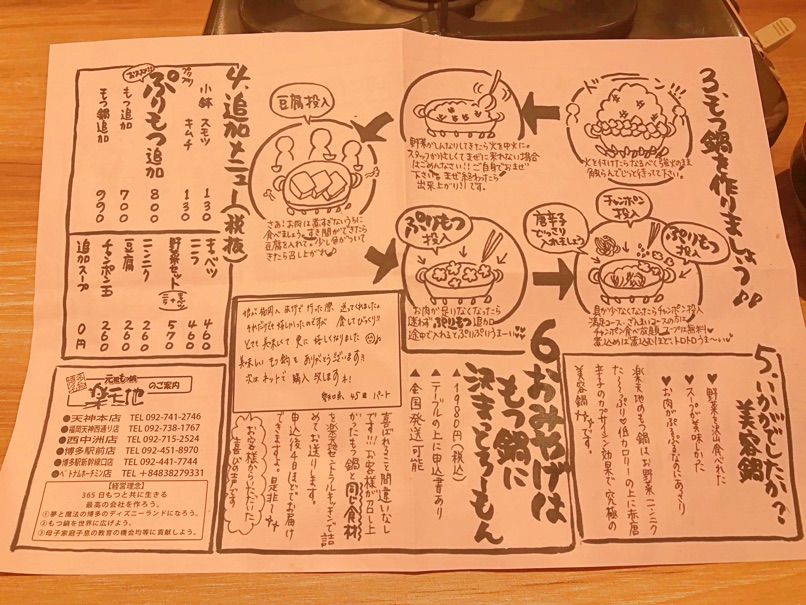 3.もつ鍋を作りましょう♪♪
ドーン
火を付けたらなるべく強火のまま
触らんでじっと待って下さい。
野菜がしんなりしてきたら火を中火に。
スタッフが忙しくてまぜに来れない場合
はごめんなさい!!ご自身でおまぜ
下さい。まぜ終わったら
出来上がり!!です。
豆腐投入
さあ!お肉は煮すぎないうちに
食べましょう。すき間ができたら
豆腐を入れて。少し色がついて
きたら召し上がれ♪
ぷりもつ
投入
お肉が足りなくなったら
迷わずぷりもつ追加
途中で入れてぷりぷりうまーい♥
唐辛子
どっさり
入れましょう
チャンポン
投入
ぷりもつ
投入
具が少なくなったらチャンポン投入
満足コース・ざんまいコースの方は
チャンポン食べ放題。スープは無料
煮込めば煮込むほどトロトロうまーい♥
4.追加メニュー(税抜)
オススメ!!
プリプリ
ぷりもつ追加 800
小鉢 スモツ 130
キムチ 130
もつ追加 700
もつ鍋追加 990
キャベツ 460
ニラ 460
野菜セット 570
ニンニク 260
豆腐 260
チャンポン玉 260
追加スープ 0円
5.いかがでしたか?
美容鍋
♥野菜を沢山食べれた
♥スープが美味しかった
♥お肉がぷるぷるなのにあっさり
楽天地のもつ鍋はお野菜、ニンニク
たーーっぷり♥低カロリーの上に赤唐
辛子のカプサイシン効果で究極の
美容鍋です。
6おみやげは
もつ鍋に
決まっとろーもん
▲1980円(税込)
▲テーブルの上に申込書あり
▲全国発送可能
喜ばれること間違いなし
です!!!お客様が召し上
がったもつ鍋と同じ食材
を楽天地セントラルキッチンで詰
めてお送ります。
申込後4日ほどでお届け
できますよ!是非
お客様からいただいた
喜びの声です
それだけでも嬉しかったのですが 食してびっくり!!
とても美味しくて更に嬉しくなりました
美味しいもつ鍋をありがとうございます!!!
次はネットで購入致しますネ!
45才 パート
元祖もつ鍋
楽天地 のご案内
●天神本店 TEL 092-741-2746
●福岡天神西通り店 TEL 092-738-1767
●西中洲店 TEL 092-715-2524
●博多駅前店 TEL 092-451-8970
●博多駅新幹線口店 TEL 092-441-7744
●ベトナムホーチミン店 TEL +84838279331
【経営理念】
365日もつと共に生きる
最高の会社を作ろう。
①夢と魔法の博多のディズニーランドになろう。
②もつ鍋を世界に広げよう。
③母子家庭子息の教育の機会均等に貢献しよう。